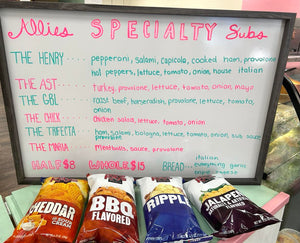 Allies SPECIALTY Subs
THE HENRY.... pepperoni, salami, capicola, cooked ham, provolone
hot peppers, lettuce, tomato, onion, house italian
THE AST..... turkey, provolone, lettuce, tomato, onion, mayo
THE GBL roast beef, horseradish, provolone, lettuce, tomato,
onion
THE CHIX.... chicken salad, lettuce, tomato, onion
THE TRIFECTA ham, salami, bologna, lettuce, tomato, onion, sub sauce
provolone
THE MAMA meatballs, sauce, provolone
HALF $8 WHOLE $15 BREAD...
italian
everything garlic
CHEDDAR
& SOUR
CREAM
BBQ
FLAVORED
RIPPLE
JALAPEÑO